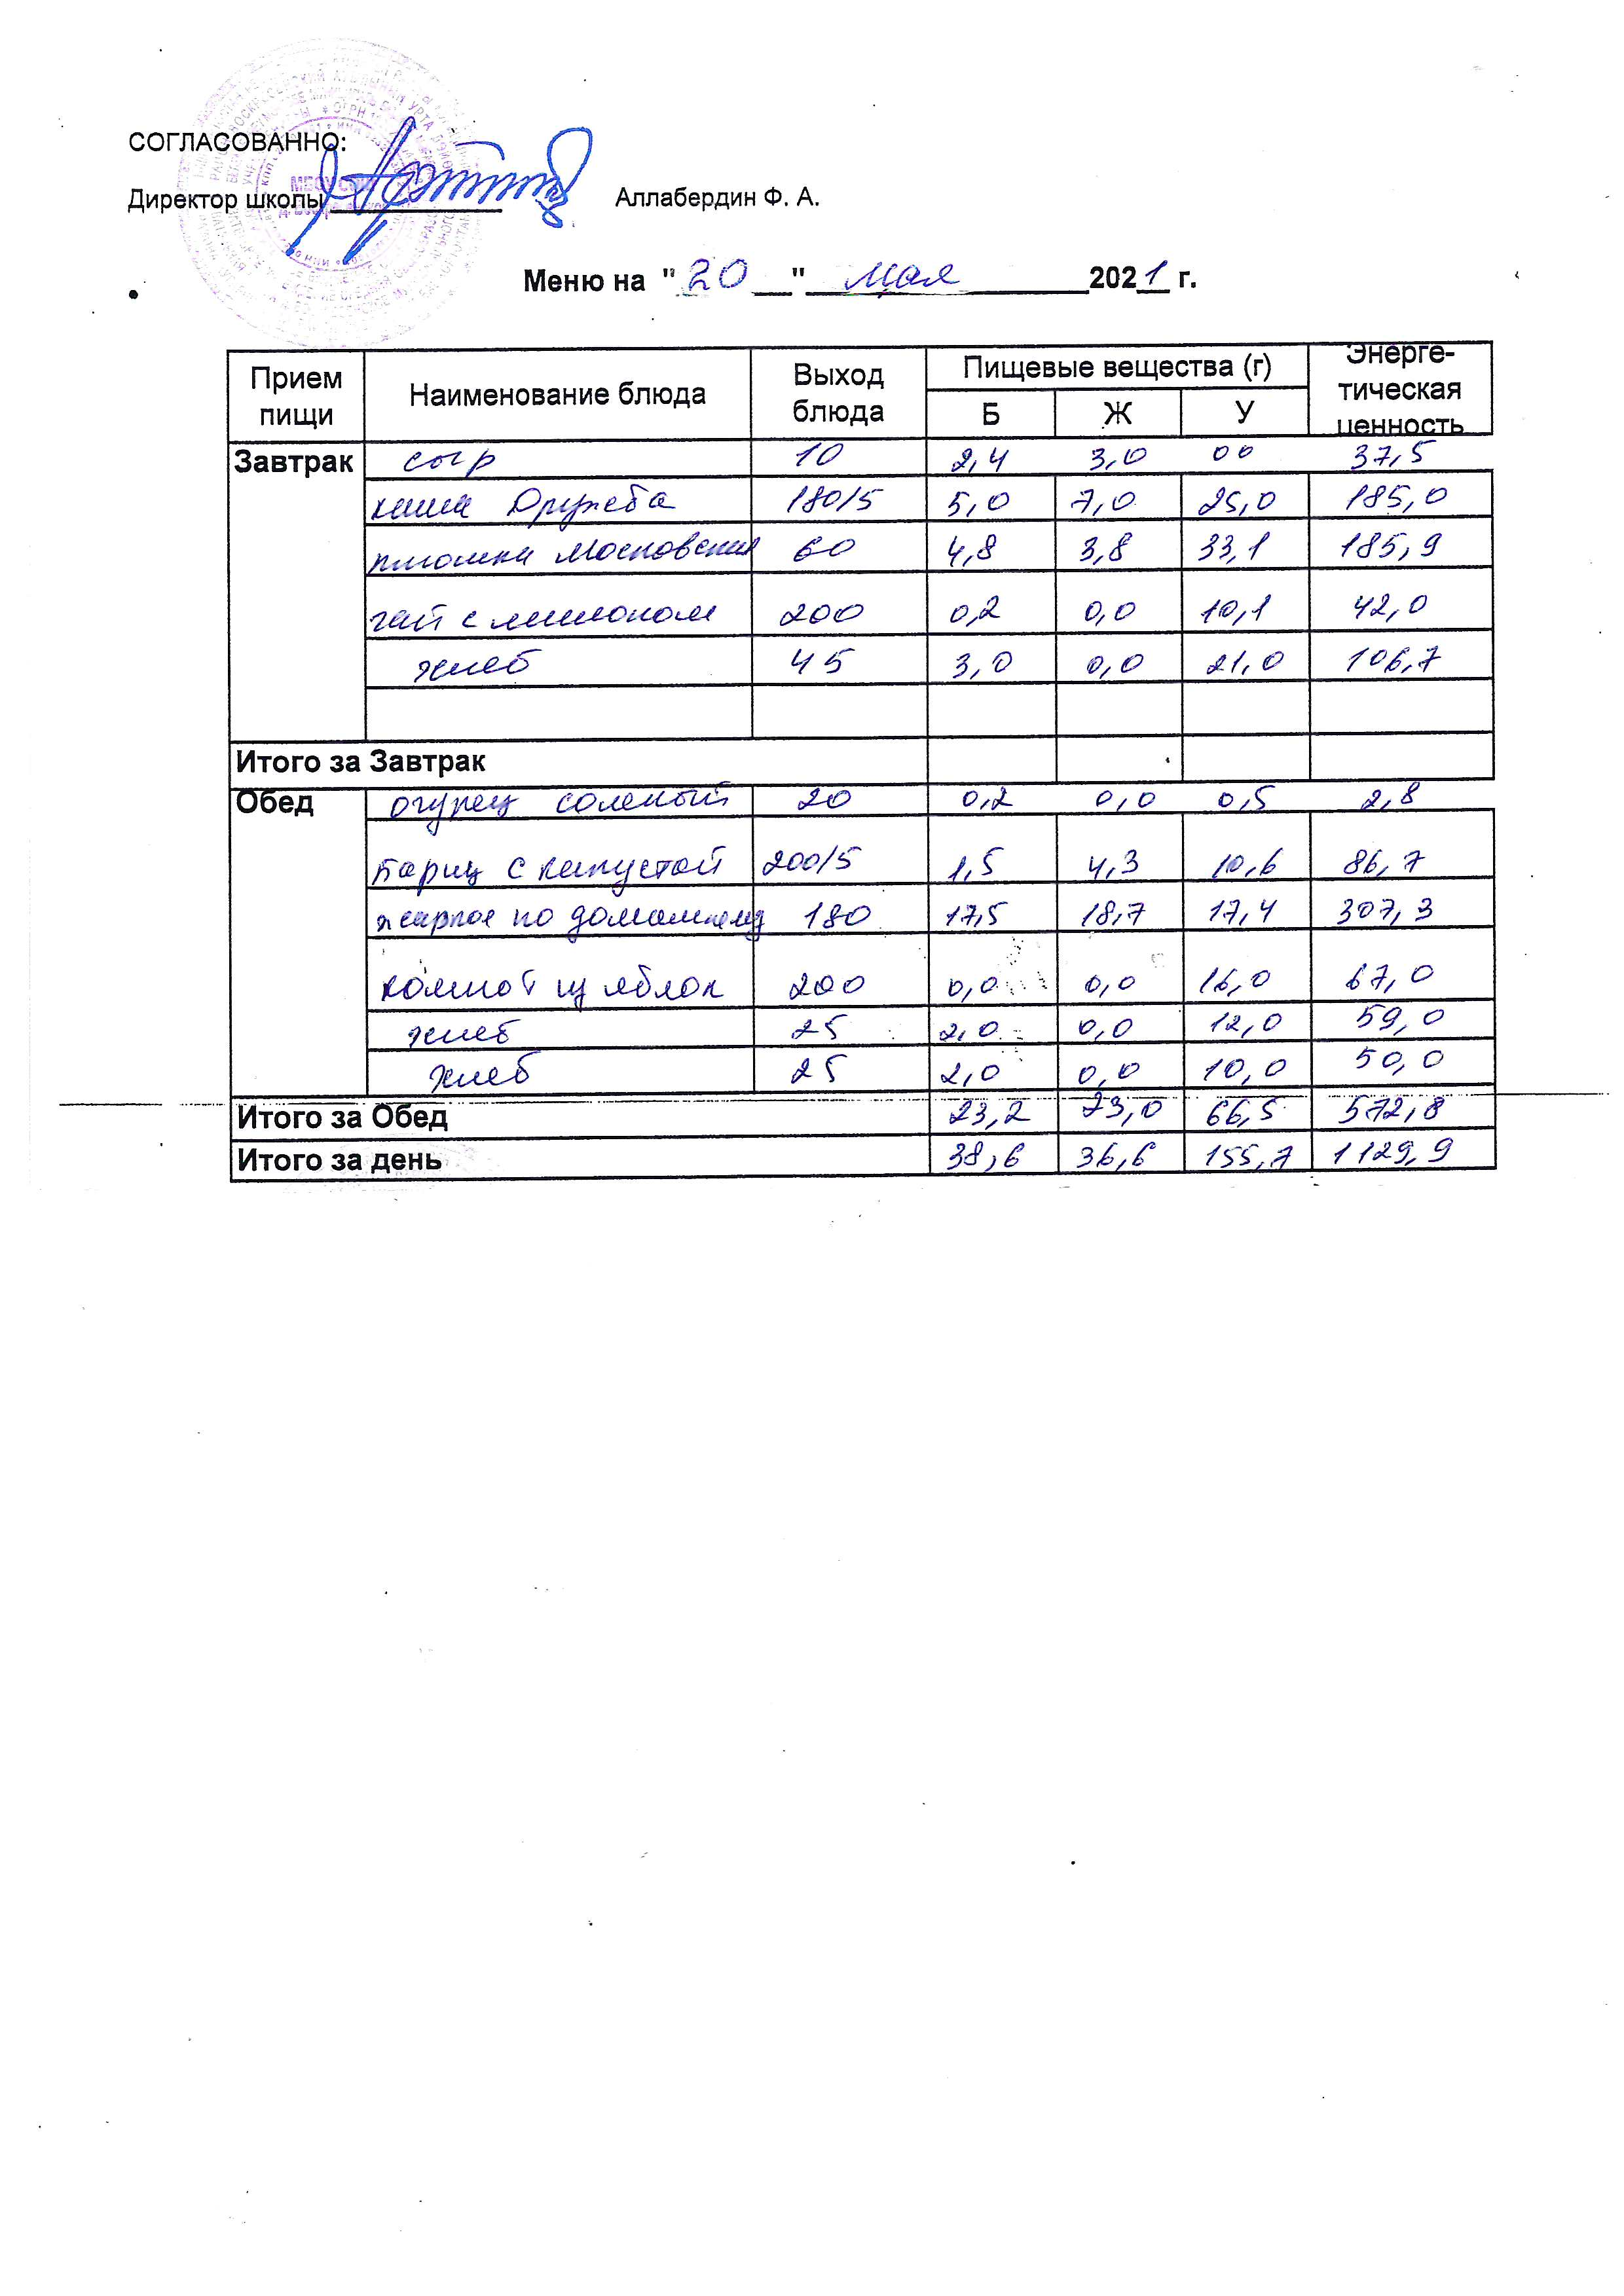 СОГЛАСОВАННО:
Директор школы Аллабердин Ф. А.
МБОУ СОШ
Меню на "20" мая 2021 г.
Прием пищи Наименование блюда Выход блюда Пищевые вещества (г) Энерге-тическая ценность
Б Ж У
Завтрак сыр 10 2,4 3,0 00 37,5
каша Дружба 180/5 5,0 7,0 25,0 185,0
Московская 60 4,8 3,8 33,1 185,9
чай с лимоном 200 0,2 0,0 10,1 42,0
хлеб 45 3,0 0,0 21,0 106,7
Итого за Завтрак
Обед огурец соленый 20 0,2 0,0 0,5 2,8
Борщ с капустой 200/5 1,5 4,3 10,6 86,7
жаркое по домашнему 180 17,5 18,7 17,4 307,3
компот из яблок 200 0,0 0,0 16,0 67,0
хлеб 25 2,0 0,0 12,0 59,0
хлеб 25 2,0 0,0 10,0 50,0
Итого за Обед 23,2 23,0 66,5 572,8
Итого за день 38,6 36,6 155,7 1129,9